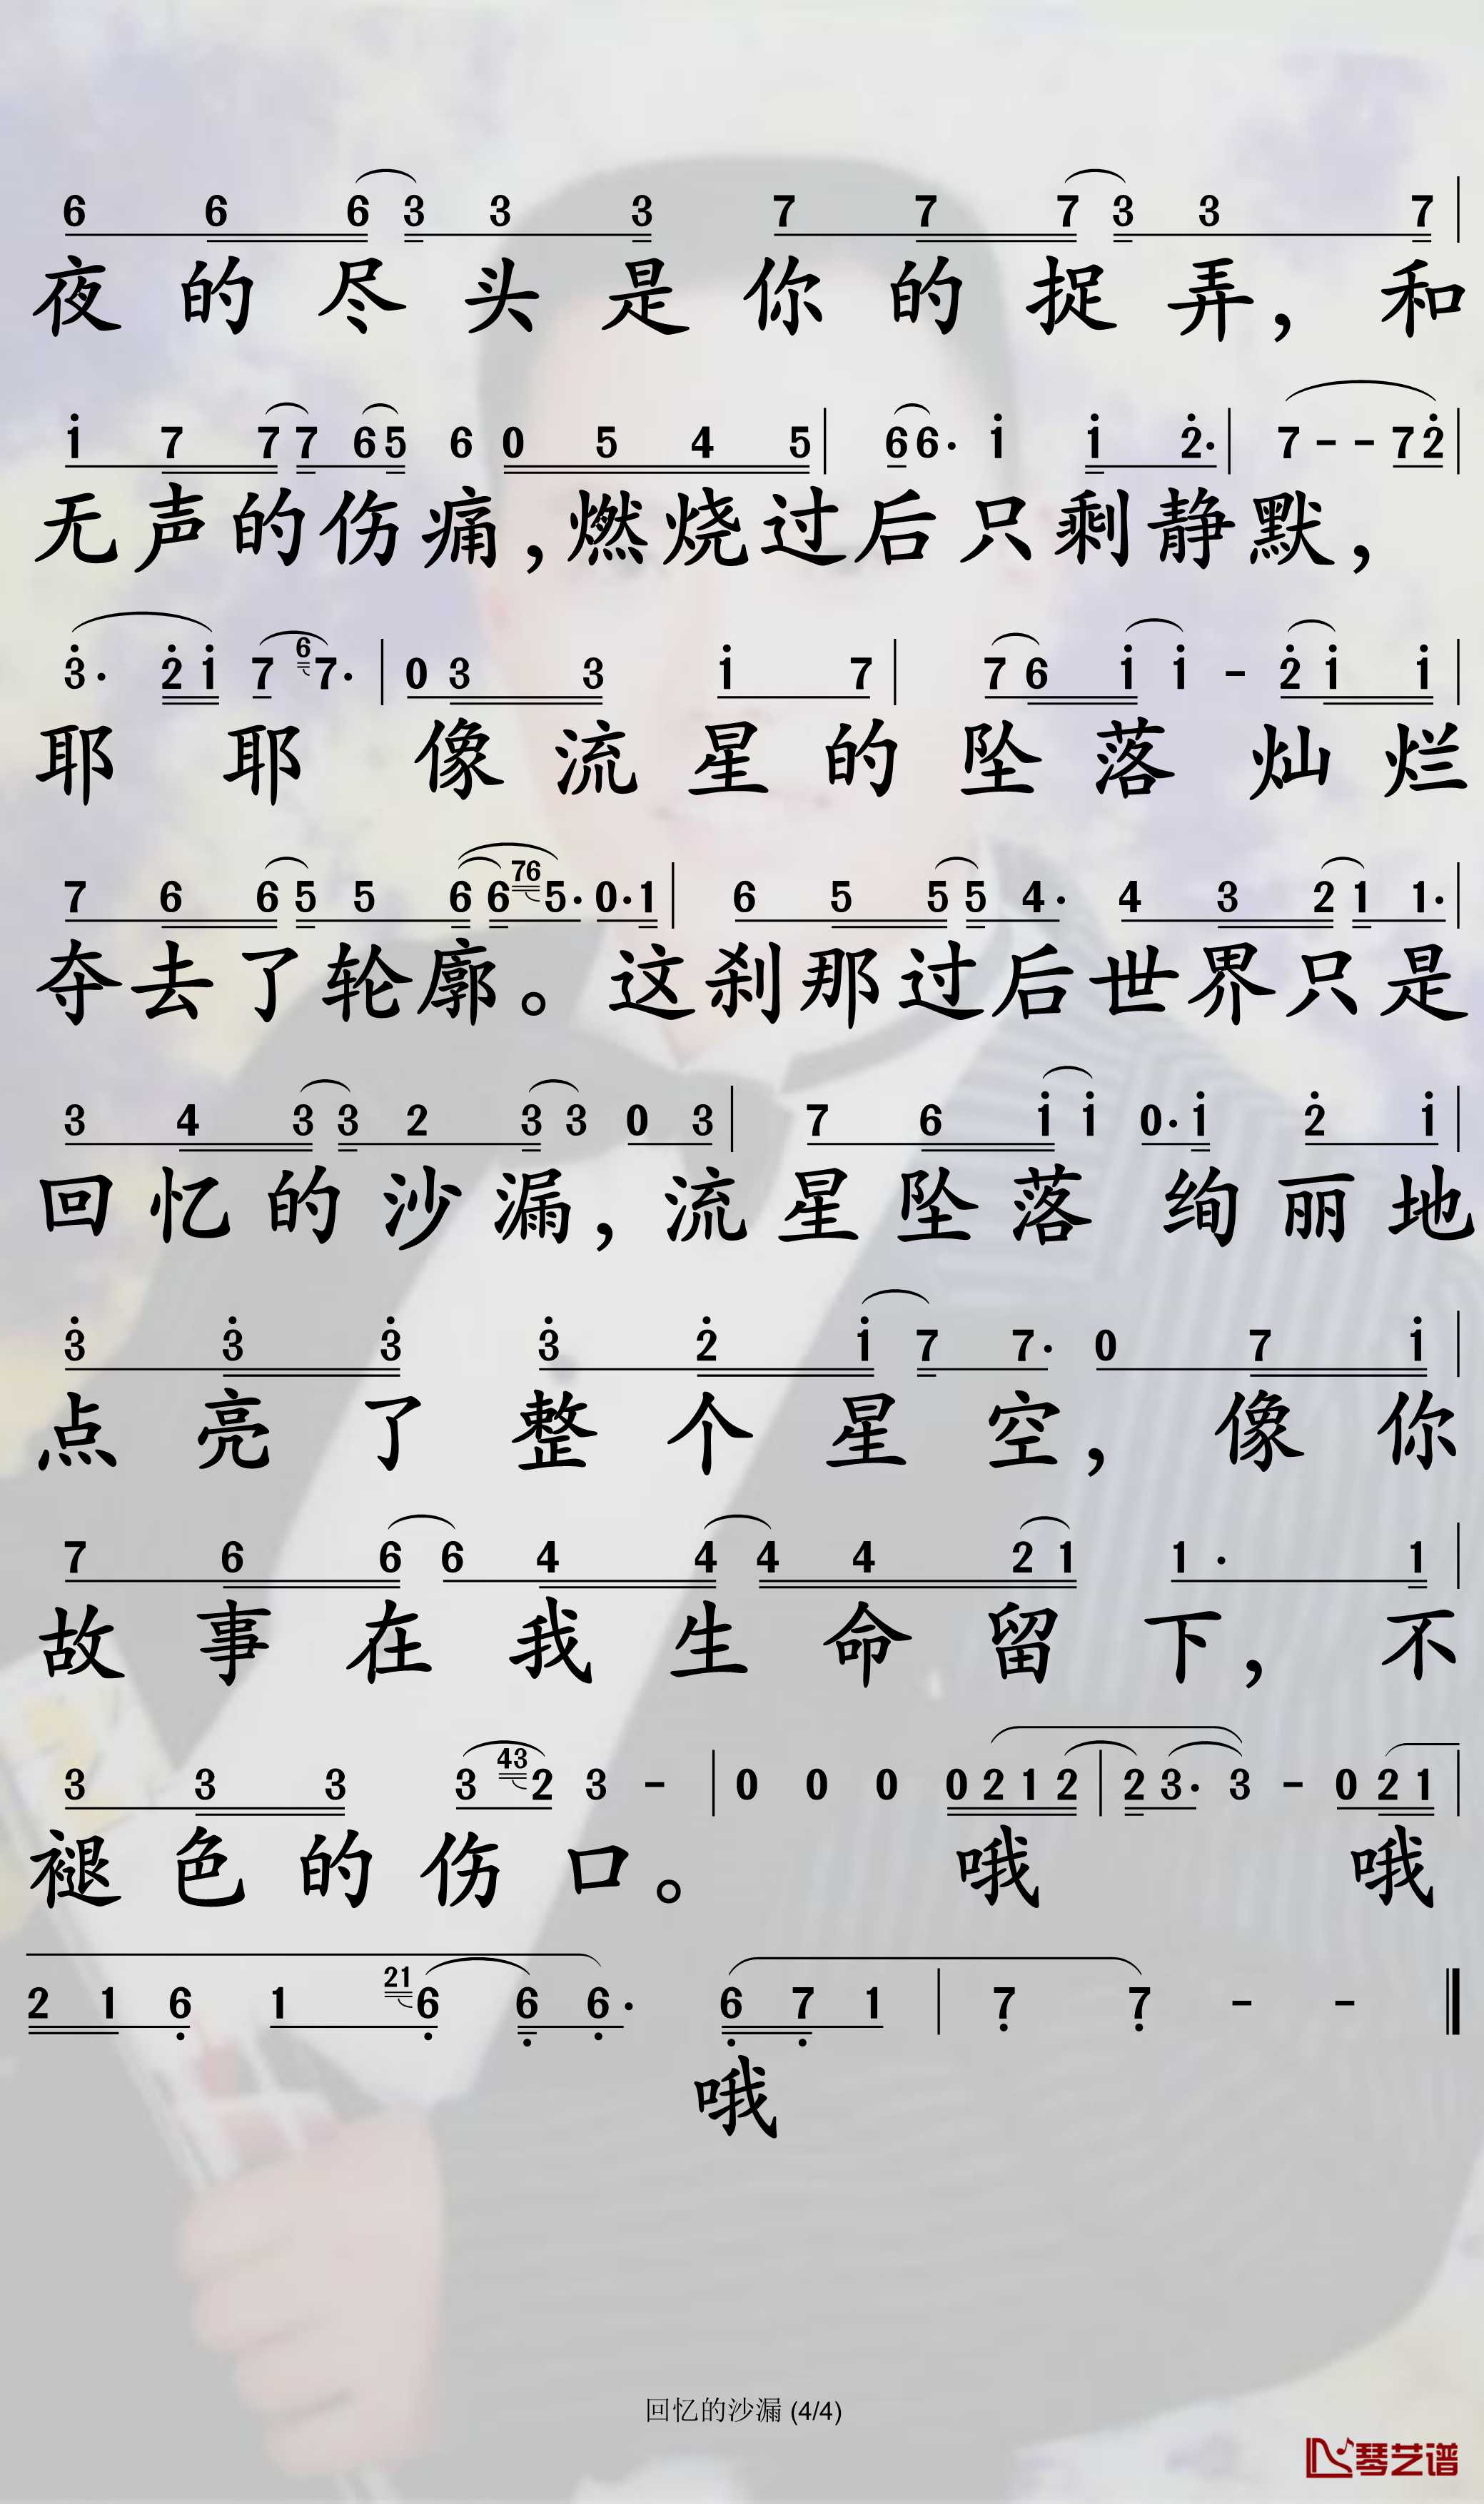 6 6 6 3 3 3 7 7 7 3 3 7 |
夜的尽头是你的捉弄，和
i 7 7 7 6 5 6 0 5 4 5 | 6 6· i i 2̇· | 7 - - 7 2̇ |
无声的伤痛，燃烧过后只剩静默，
3̇· 2̇ i 7 6 7· | 0 3 3 i 7 | 7 6 i i - 2̇ i i |
耶 耶 像流星的坠落灿烂
7 6 6 5 5 6 6 76 5· 0· 1 | 6 5 5 5 4· 4 3 2 1 1· |
夺去了轮廓。这刹那过后世界只是
3 4 3 3 2 3 3 0 3 | 7 6 i i 0· i 2̇ i |
回忆的沙漏，流星坠落 绚丽地
3̇ 3̇ 3̇ 3̇ 2̇ i 7 7· 0 7 i |
点亮了整个星空，像你
7 6 6 6 4 4 4 4 2 1 1· 1 |
故事在我生命留下，不
3 3 3 3 43 2 3 - | 0 0 0 0 2 1 2 | 2 3· 3 - 0 2 1 |
褪色的伤口。 哦 哦
2 1 6̣ 1 21 6̣ 6̣ 6̣· 6̣ 7̣ 1 | 7̣ 7̣ - - ‖
哦
回忆的沙漏 (4/4)
琴艺谱